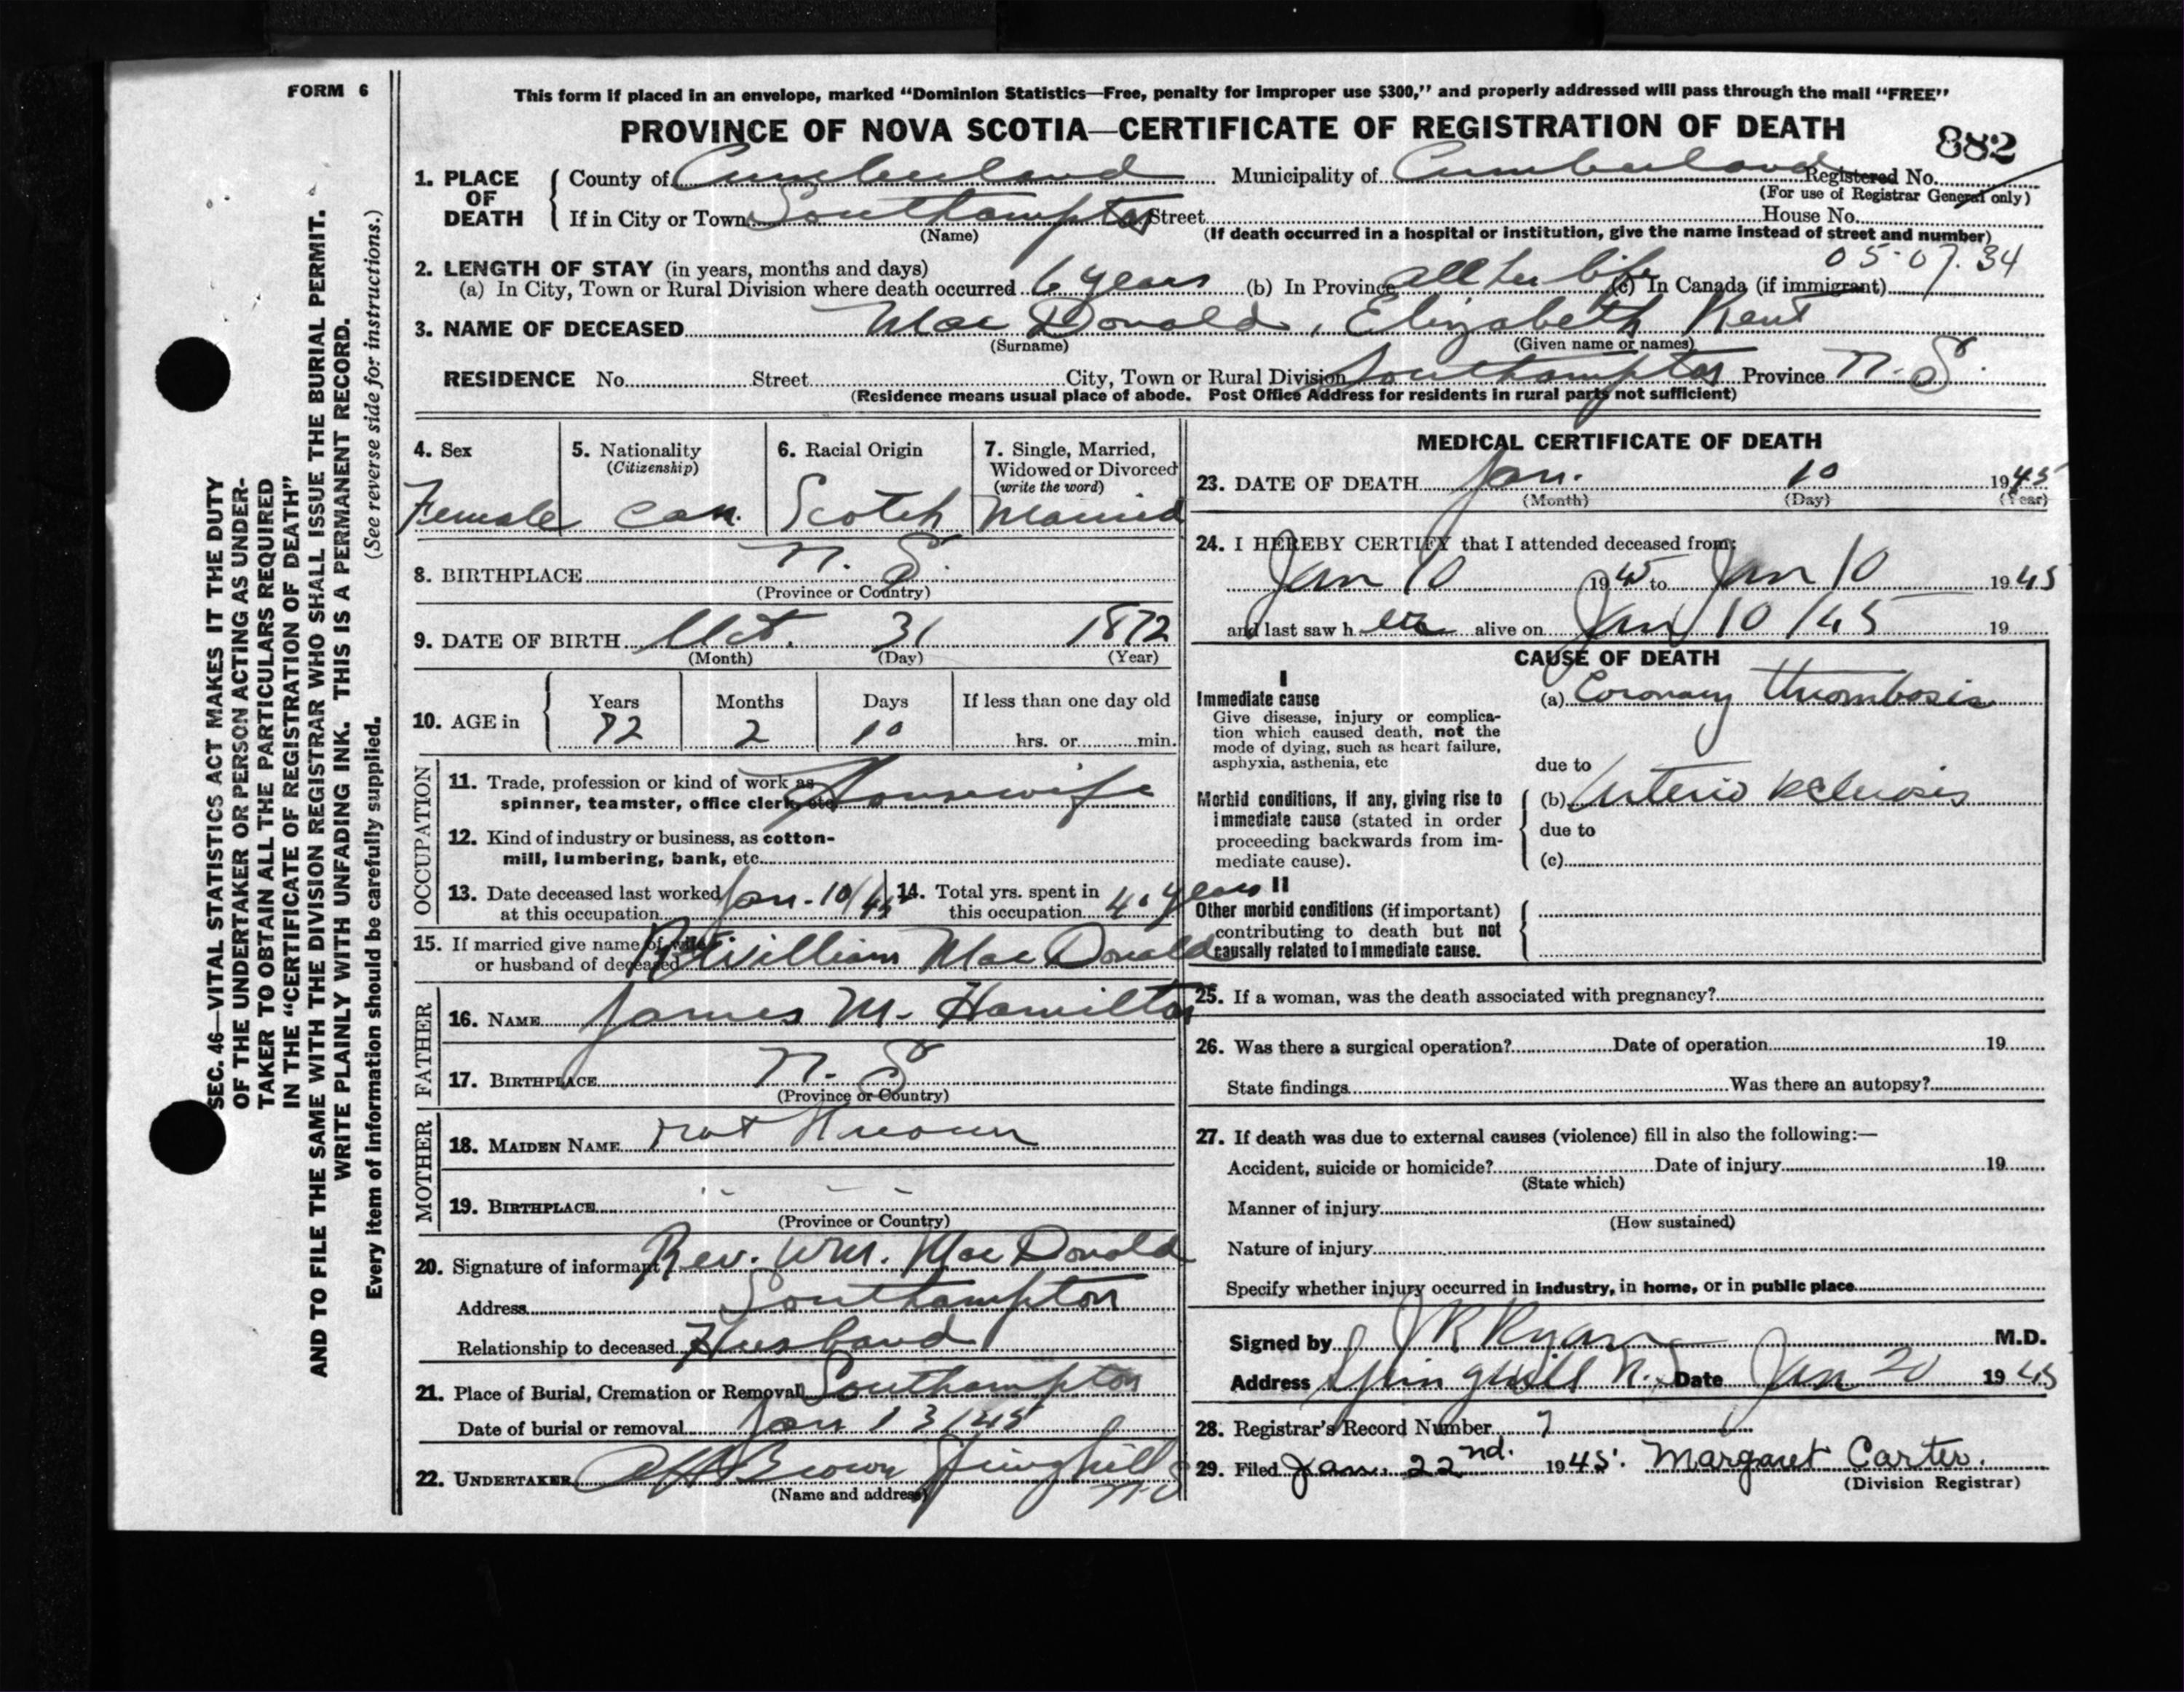 FORM 6
This form if placed in an envelope, marked “Dominion Statistics—Free, penalty for improper use $300,” and properly addressed will pass through the mail “FREE”
PROVINCE OF NOVA SCOTIA—CERTIFICATE OF REGISTRATION OF DEATH
882
1. PLACE OF DEATH
County of Cumberland Municipality of Cumberland Registered No.
(For use of Registrar General only)
If in City or Town Southampton Street House No.
(Name) (If death occurred in a hospital or institution, give the name instead of street and number)
05-07.34
2. LENGTH OF STAY (in years, months and days)
(a) In City, Town or Rural Division where death occurred 6 years (b) In Province all her life (c) In Canada (if immigrant)
3. NAME OF DECEASED Mac Donald, Elizabeth Kent
(Surname) (Given name or names)
RESIDENCE No. Street City, Town or Rural Division Southampton Province N.S.
(Residence means usual place of abode. Post Office Address for residents in rural parts not sufficient)
4. Sex Female
5. Nationality (Citizenship) Can.
6. Racial Origin Scotch
7. Single, Married, Widowed or Divorced (write the word) Married
8. BIRTHPLACE N.S.
(Province or Country)
9. DATE OF BIRTH Oct. 31 1872
(Month) (Day) (Year)
10. AGE in Years Months Days If less than one day old
72 2 10 hrs. or min.
OCCUPATION
11. Trade, profession or kind of work as spinner, teamster, office clerk, etc. Housewife
12. Kind of industry or business, as cotton-mill, lumbering, bank, etc.
13. Date deceased last worked at this occupation Jan. 10/45
14. Total yrs. spent in this occupation 40 years
15. If married give name of wife or husband of deceased R William Mac Donald
FATHER
16. NAME James M. Hamilton
17. BIRTHPLACE N.S
(Province or Country)
MOTHER
18. MAIDEN NAME not Known
19. BIRTHPLACE - - -
(Province or Country)
20. Signature of informant Rev. Wm. Mac Donald
Address Southampton
Relationship to deceased Husband
21. Place of Burial, Cremation or Removal Southampton
Date of burial or removal Jan 13/45
22. UNDERTAKER Brown Springhill N.S
(Name and address)
MEDICAL CERTIFICATE OF DEATH
23. DATE OF DEATH Jan. 10 1945
(Month) (Day) (Year)
24. I HEREBY CERTIFY that I attended deceased from:
Jan 10 1945 to Jan 10 1945
and last saw h er alive on Jan 10/45 19
CAUSE OF DEATH
I
Immediate cause
Give disease, injury or complication which caused death, not the mode of dying, such as heart failure, asphyxia, asthenia, etc
(a) Coronary thrombosis
due to
Morbid conditions, if any, giving rise to immediate cause (stated in order proceeding backwards from immediate cause).
(b) Arterio sclerosis
due to
(c)
II
Other morbid conditions (if important) contributing to death but not causally related to immediate cause.
25. If a woman, was the death associated with pregnancy?
26. Was there a surgical operation? Date of operation 19
State findings Was there an autopsy?
27. If death was due to external causes (violence) fill in also the following:—
Accident, suicide or homicide? Date of injury 19
(State which)
Manner of injury
(How sustained)
Nature of injury
Specify whether injury occurred in industry, in home, or in public place
Signed by J R Ryan M.D.
Address Springhill N.S Date Jan 20 1945
28. Registrar's Record Number 7
29. Filed Jan. 22nd. 1945. Margaret Carter.
(Division Registrar)
SEC. 46—VITAL STATISTICS ACT MAKES IT THE DUTY
OF THE UNDERTAKER OR PERSON ACTING AS UNDER-
TAKER TO OBTAIN ALL THE PARTICULARS REQUIRED
IN THE “CERTIFICATE OF REGISTRATION OF DEATH”
AND TO FILE THE SAME WITH THE DIVISION REGISTRAR WHO SHALL ISSUE THE BURIAL PERMIT.
WRITE PLAINLY WITH UNFADING INK. THIS IS A PERMANENT RECORD.
Every item of information should be carefully supplied. (See reverse side for instructions.)